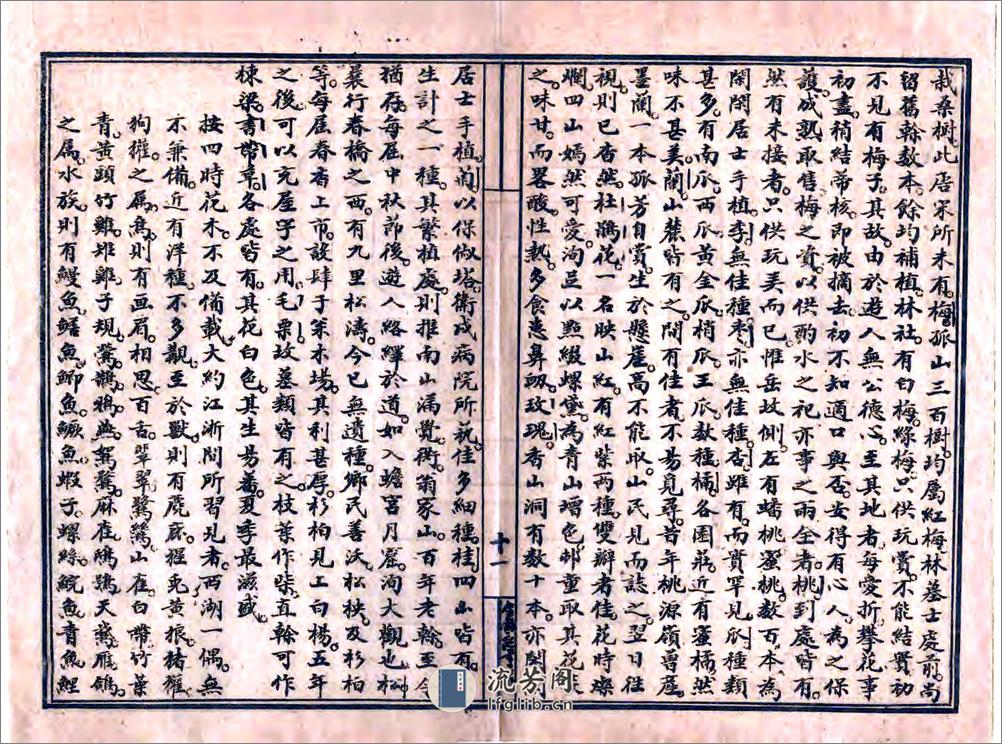 栽桑樹此唐宋所未有梅孤山三百樹均屬紅梅林墓士處前尚
留舊幹數本餘均補植林社有白梅綠梅只供玩賞不能結實初
不見有梅子其故由於遊人無公德心至其地者每愛折攀花事
初盡稍結蒂核即被摘去初不知適口與否安得有心人為之保
護成熟取售梅之資以供酌水之祀亦事之兩全者桃到處皆有
然有未接者只供玩美而已惟岳坟側左有蟠桃蜜桃數百本為
閑閑居士手植李無佳種棗亦無佳種杏雖有而實罕見瓜種類
甚多有南瓜西瓜黃金瓜梢瓜王瓜數種橘各園莊近有蜜橘然
味不甚美蘭山麓皆有之間有佳者不易見尋昔年桃源嶺曾產
墨蘭一本孤芳自賞生於懸崖高不能取山民見而誌之翌日往
視則已杳然杜鵑花一名映山紅有紅紫兩種雙瓣者佳花時燦
爛四山嫣然可愛洵足以點綴螺黛為青山增色邨童取其花炎
之味甘而畧酸性熱多食患鼻衂玫瑰香山洞有數十本亦閑
居士手植菊以保俶塔衛戍病院所蓺佳多細種桂四山皆有
生計之一種其繁植處則推南山滿覺衖翁家山百年老幹至今
猶存每屆中秋節後遊人絡繹於道如入蟾宮月窟洵大觀也松
蓑行春橋之西有九里松濤今已無遺種鄉民善沃松秧及杉柏
等每屆春者上市設肆于茶木場其利甚厚杉柏見工白楊五年
之後可以充屋宇之用毛栗坟墓類皆有之枝葉作柴直幹可作
棟梁書帶草各處皆有其花白色其生易蕃夏季最滋盛
按四時花木不及備載大約江浙間所習見者西湖一偶無
不兼備近有洋種不多觀至於獸則有麂麻狸兎黃狼猪獾
狗獾之屬鳥則有画眉相思百舌翠翠鷺鷥山雀白帶竹葉
青黃頭竹雞雉雞子規鶯鵲鴉燕鴛鴦麻雀鴟鴞天鵞雁鴿
之屬水族則有鰻魚鱔魚鯽魚鱖魚蝦子螺螄鯇魚青魚鯉
十一
流芳阁
lfglib.cn